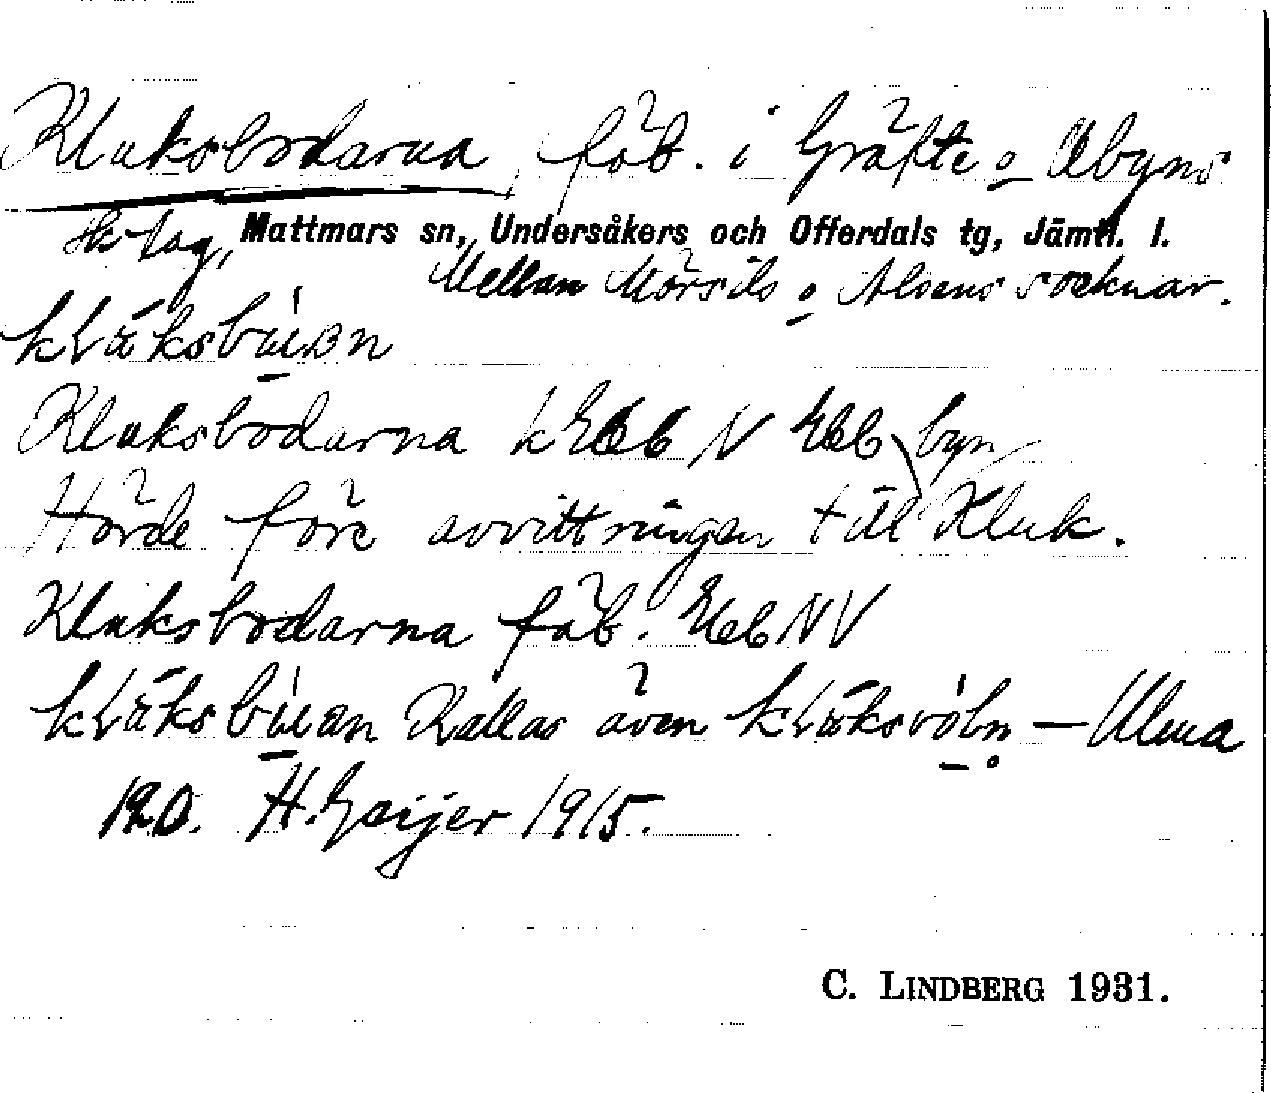 Kluksbodarna, fäb. i Gräfte o Åbyns
sk-lag, Mattmars sn, Undersåkers och Offerdals tg, Jämtl. l.
Mellan Mörsils o Alsens socknar.
Kluksbodarna kEbl N Ebl byn
Hörde före avvittringen till Kluk.
Kluksbodarna fäb. Ebl NV
Kallas även — Ulma
120. H. Geijer 1915.
C. LINDBERG 1931.